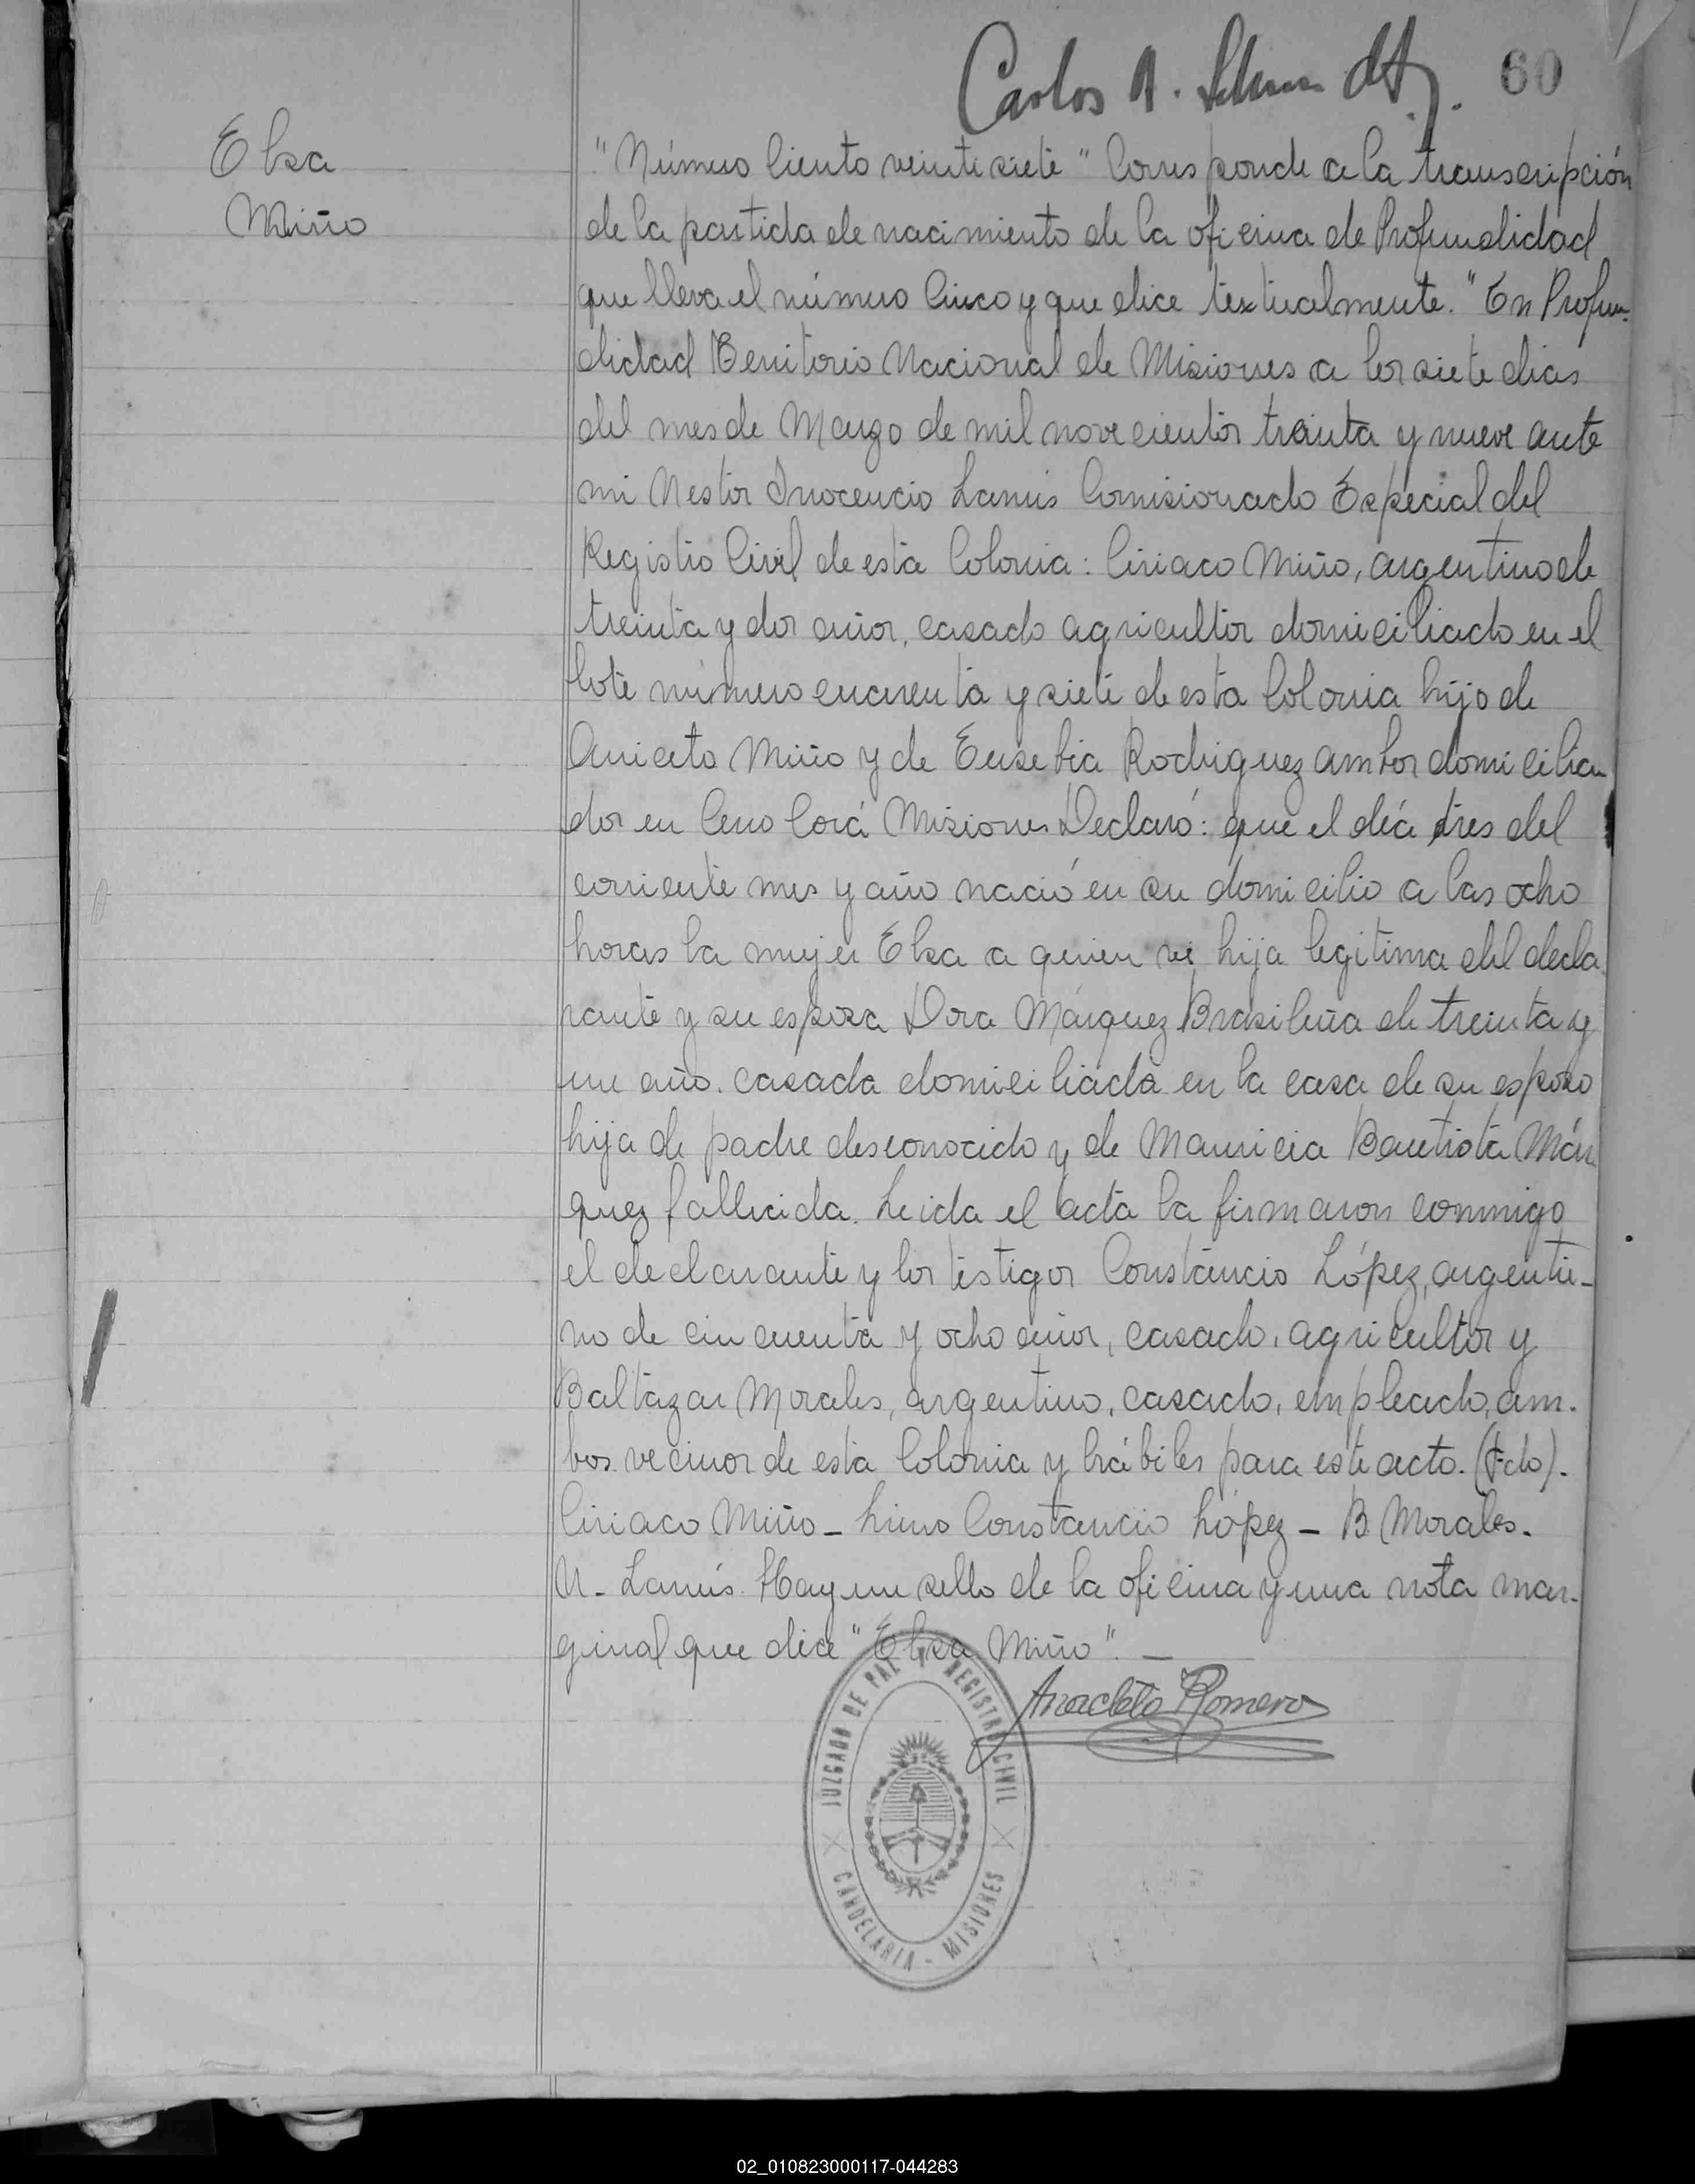 Carlos A. 60
Elsa
Miño
"Número Ciento veintisiete" Corresponde a la transcripción
de la partida de nacimiento de la oficina de Profundidad
que lleva el número Cinco y que dice textualmente. "En Profun-
didad Territorio Nacional de Misiones a los siete dias
del mes de Marzo de mil novecientos treinta y nueve ante
mi Nestor Inocencio Lanús Comisionado Especial del
Registro Civil de esta Colonia: Ciriaco Miño, argentino de
treinta y dos años, casado agricultor domiciliado en el
lote número cincuenta y siete de esta Colonia hijo de
Aniceto Miño y de Eusebia Rodriguez ambos domicilia-
dos en Cerro Corá Misiones Declaró: que el día tres del
corriente mes y año nació en su domicilio a las ocho
horas la mujer Elsa a quien vi hija legitima del decla
rante y su esposa Dora Márquez Brasileña de treinta y
un año. casada domiciliada en la casa de su esposo
hija de padre desconocido y de Mauricia Bautista Már
quez fallecida. Leida el acta la firmaron conmigo
el declarante y los testigos Constancio López, argenti-
no de cincuenta y ocho años, casado, agricultor y
Baltazar Morales, argentino, casado, empleado, am-
bos vecinos de esta Colonia y hábiles para este acto. (Fdo).
Ciriaco Miño - Lino Constancio López - B. Morales.
N. Lanús. Hay un sello de la oficina y una nota mar-
ginal que dice "Elsa Miño". —
Anacleto Romero
JUZGADO DE PAZ Y REGISTRO CIVIL
CANDELARIA - MISIONES
02_010823000117-044283